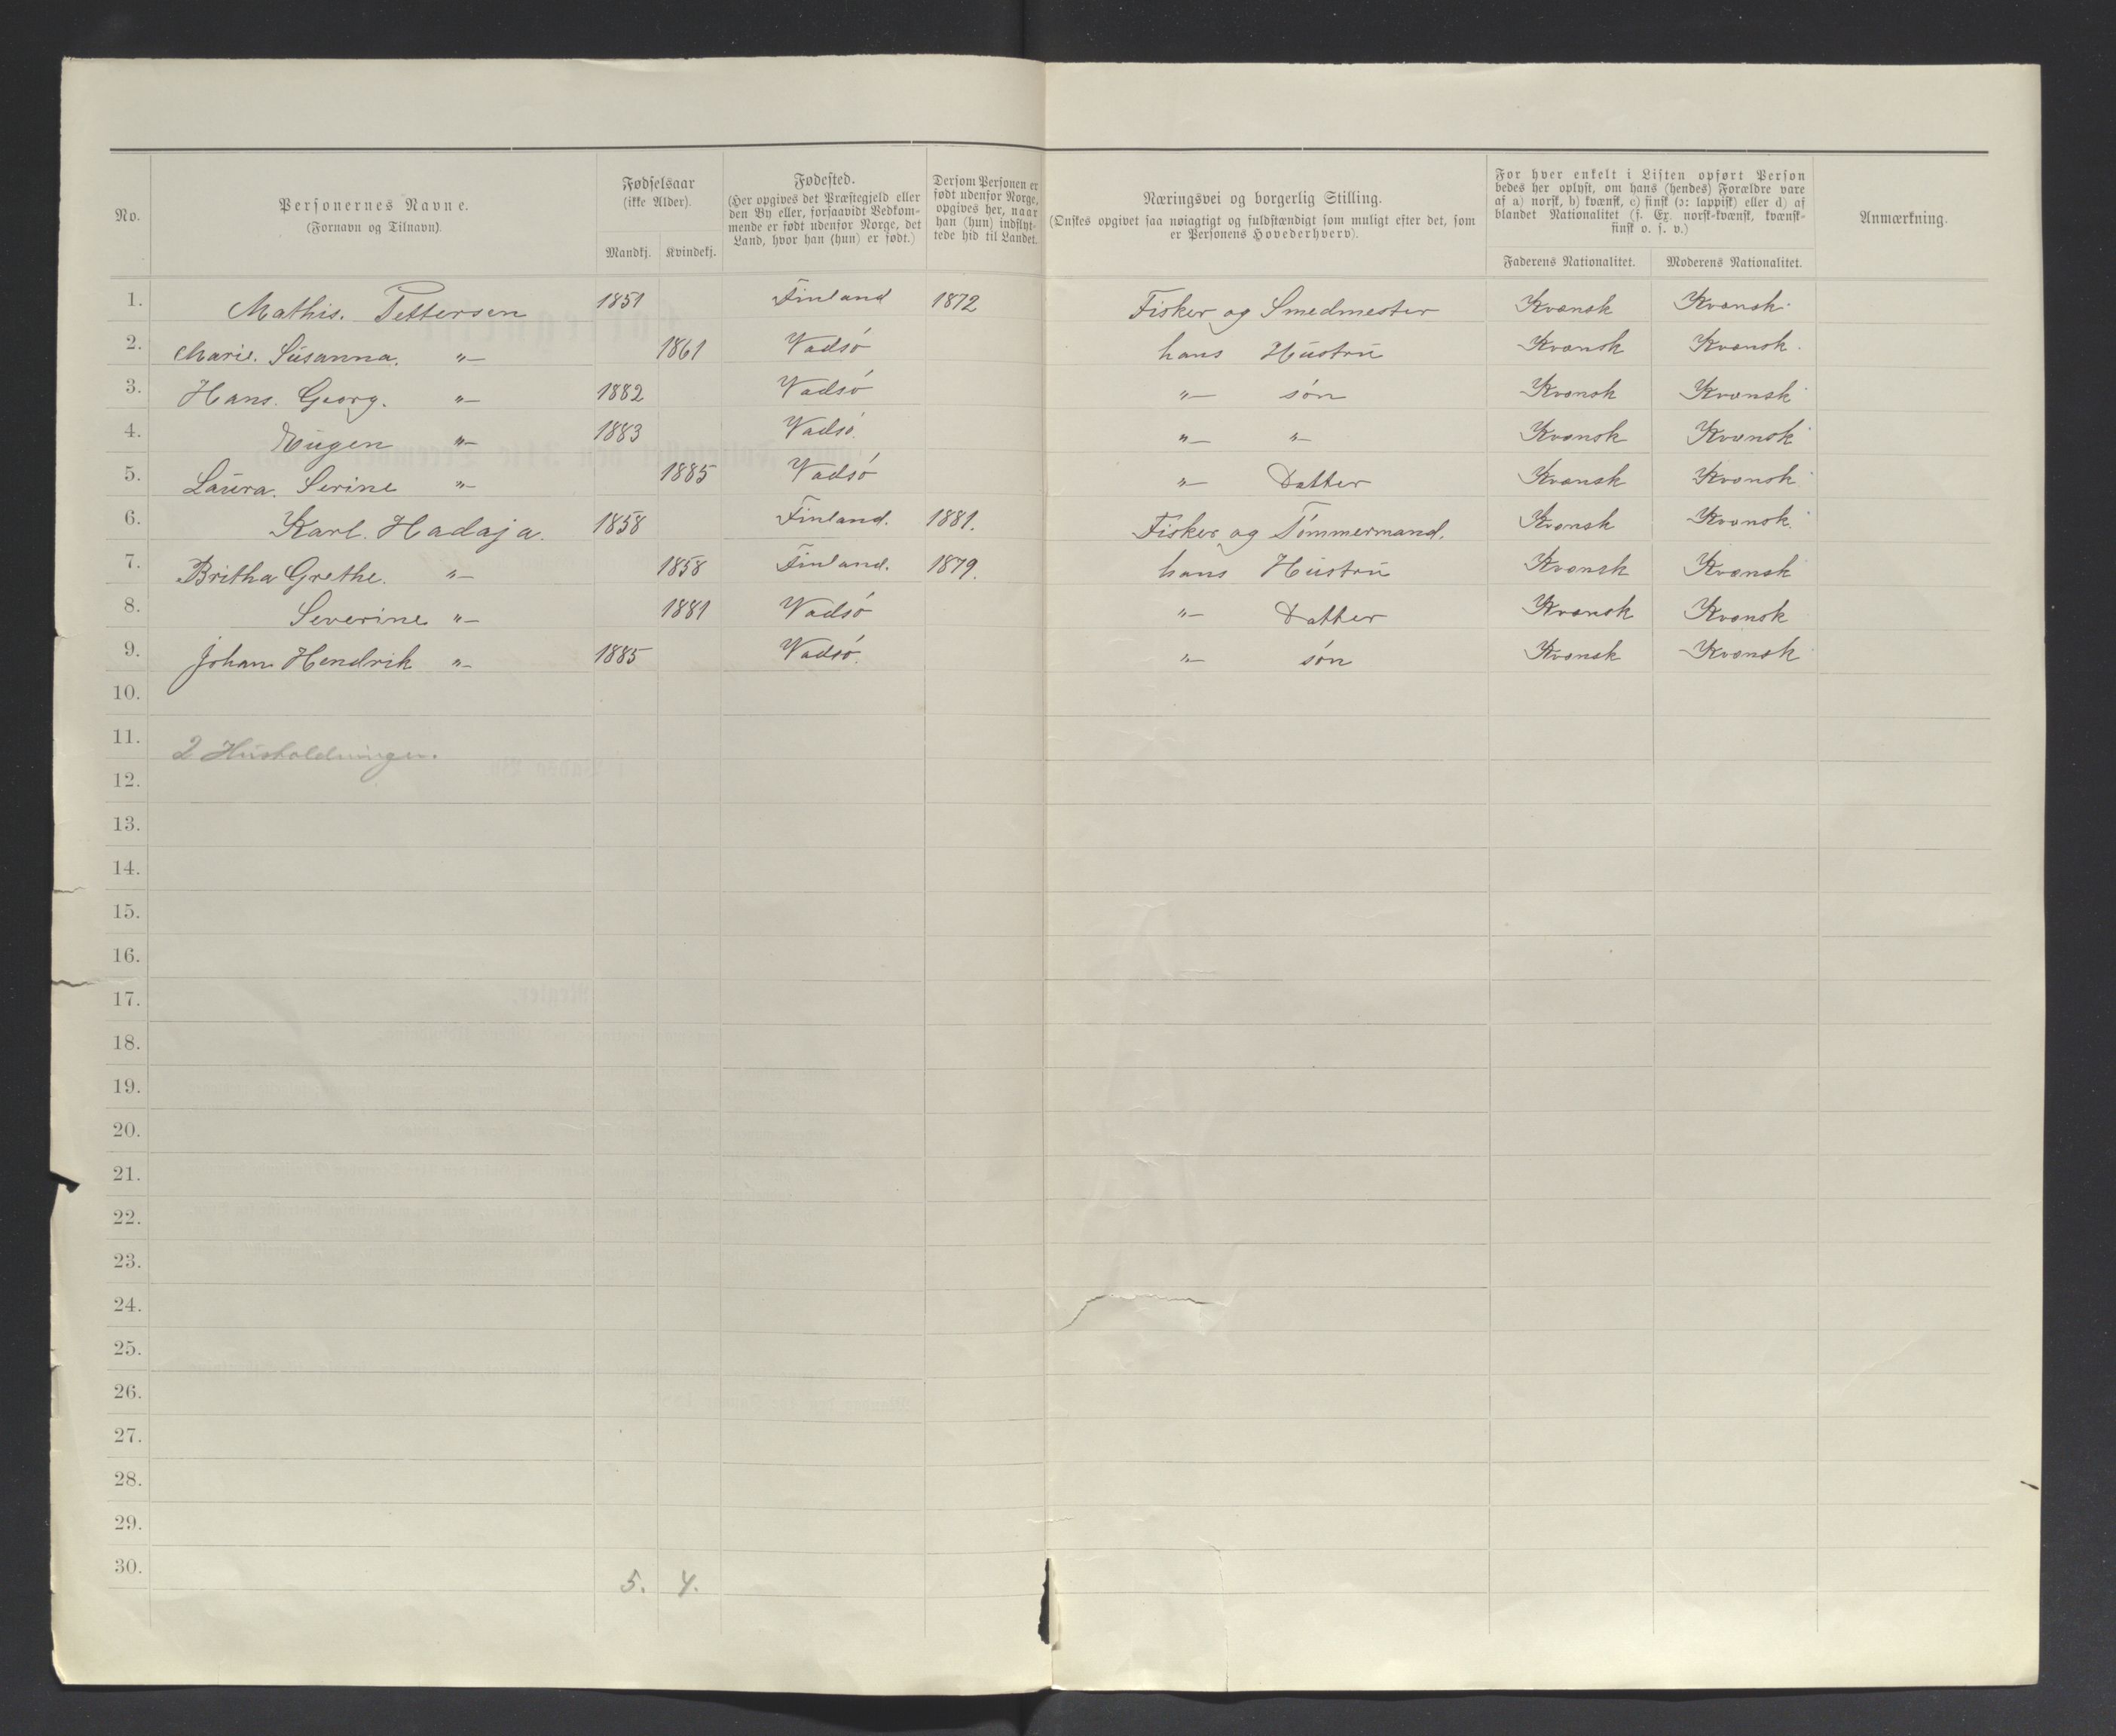 No.
Personernes Navne.
(Fornavn og Tilnavn).
Fødselsaar
(ikke Alder).
Mandkj. Kvindekj.
Fødested.
(Her opgives det Præstegjeld eller
den By eller, forsaavidt Vedkom-
mende er født udenfor Norge, det
Land, hvor han (hun) er født.)
Dersom Personen er
født udenfor Norge,
opgives her, naar
han (hun) indflyt-
tede hid til Landet.
Næringsvei og borgerlig Stilling.
(Ønskes opgivet saa nøiagtigt og fuldstændigt som muligt efter det, som
er Personens Hovederhverv).
For hver enkelt i Listen opført Person
bedes her oplyst, om hans (hendes) Forældre vare
af a) norsk, b) kvænsk, c) finsk (ɔ: lappisk) eller d) af
blandet Nationalitet (f. Ex. norsk-kvænsk, kvænsk-
finsk o. s. v.)
Faderens Nationalitet. Moderens Nationalitet.
Anmærkning.
1. Mathis. Pettersen 1851 Finland 1872 Fisker og Smedmester Kvænsk Kvænsk.
2. Marie. Susanna. "— 1861 Vadsö hans Hustru Kvænsk Kvænsk.
3. Hans. Georg. "— 1882 Vadsö "— søn Kvænsk Kvænsk
4. Eugen "— 1883 Vadsö. "— "— Kvænsk Kvænsk
5. Laura. Serine "— 1885 Vadsö "— Datter Kvænsk Kvænsk
6. Karl. Hadaja. 1858 Finland. 1881. Fisker og Tömmermand. Kvænsk Kvænsk.
7. Britha Grethe. "— 1858 Finland. 1879. hans Hustru Kvænsk Kvænsk
8. Severine "— 1881 Vadsö "— Datter Kvænsk Kvænsk
9. Johan Hendrik "— 1885 Vadsö. "— søn Kvænsk Kvænsk
10.
11. 2 Husholdninger.
12.
13.
14.
15.
16.
17.
18.
19.
20.
21.
22.
23.
24.
25.
26.
27.
28.
29.
30. 5. 4.